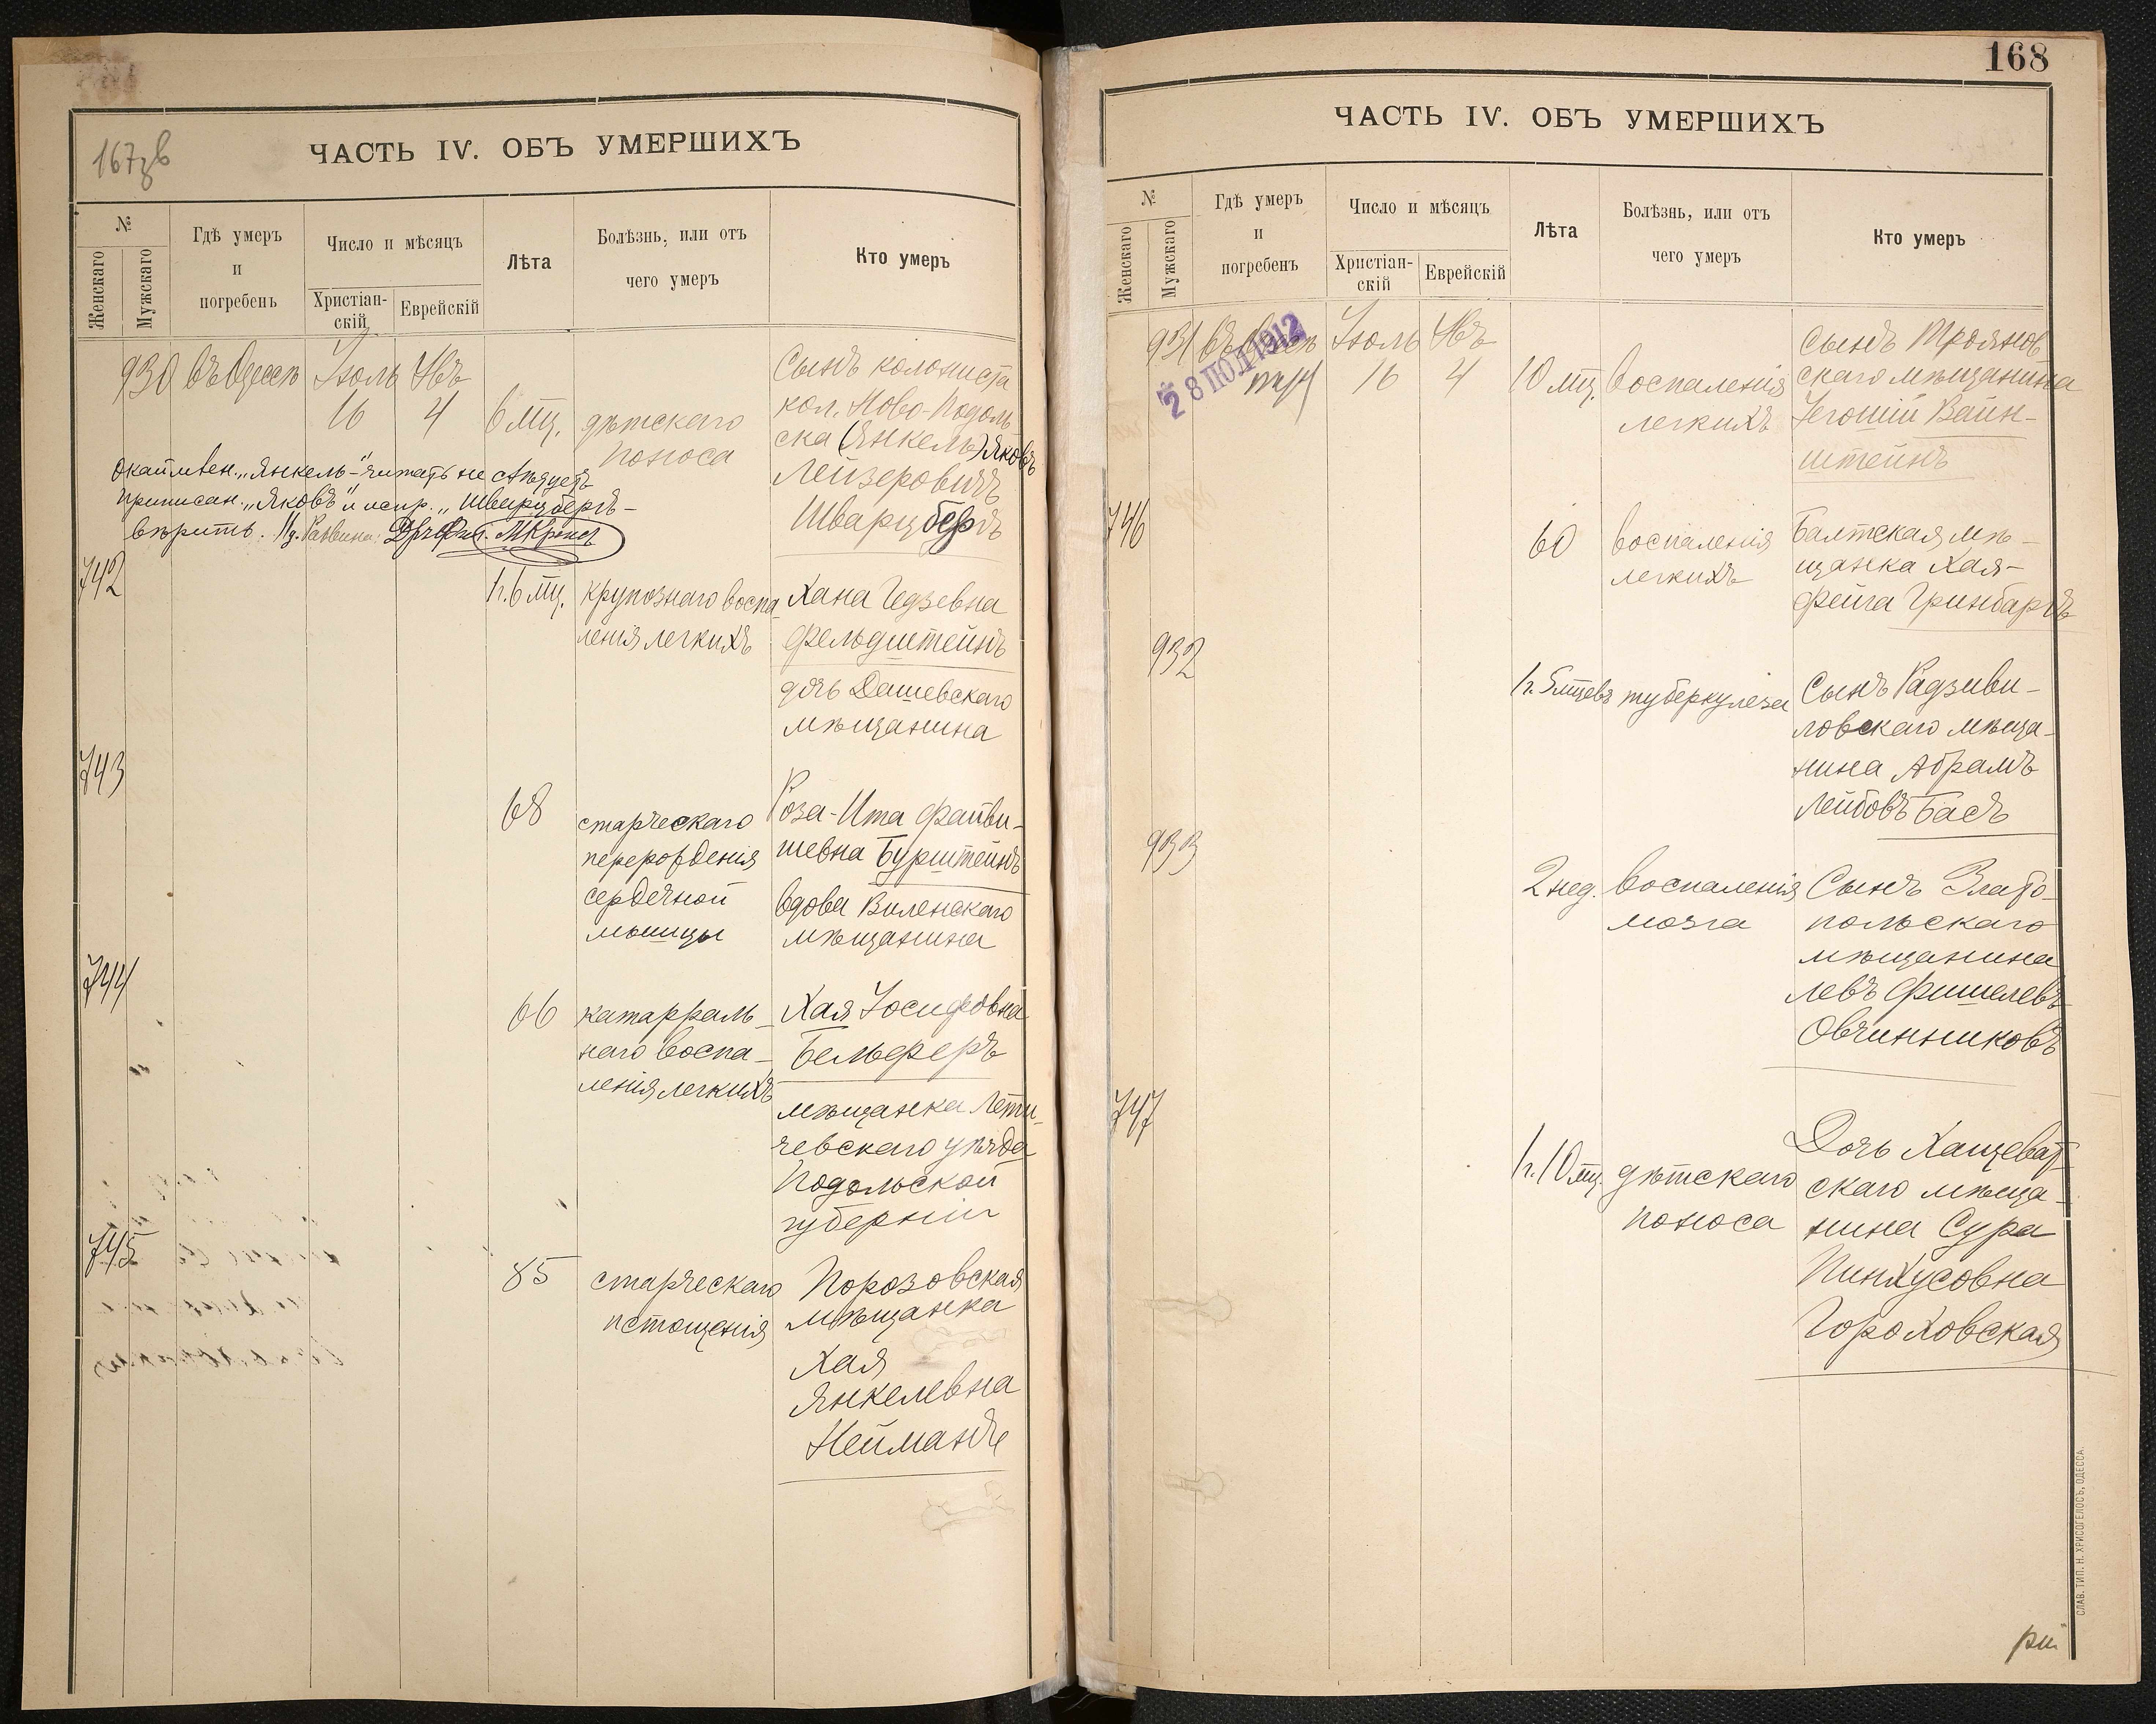 167 зв
ЧАСТЬ IV. ОБЪ УМЕРШИХЪ
№
Женскаго
Мужскаго
Гдѣ умеръ
и
погребенъ
Число и мѣсяцъ
Христіан-
скій
Еврейскій
Лѣта
Болѣзнь, или отъ
чего умеръ
Кто умеръ
930 въ Одессѣ Іюль Авъ
16 4 6 мц. дѣтскаго
поноса
Сынъ колониста
кол. Ново-Подоль
ска (Янкель) Яковъ
Лейзеровичъ
Шварцбергъ
Окаймлен. „Янкель“ - читать не слѣдуетъ
приписан. „Яковъ“ и испр. „Шварцбергъ -
вѣрить. Раввина
742
1 г. 6 мц. крупознаго воспа
ленія легкихъ
Хана Гедзевна
Фельдштейнъ
дочь Дашевскаго
мѣщанина
743
68 старческаго
перерожденія
сердечной
мышцы
Роза-Ита Файви-
шевна Бурштейнъ
вдова Виленскаго
мѣщанина
744
66 катарраль-
наго воспа-
ленія легкихъ
Хая Іосифовна
Бельферъ
мѣщанка Лети-
чевскаго уѣзда
Подольской
губерніи
745
85 старческаго
истощенія
Порозовская
мѣщанка
Хая
Янкелевна
Нейманъ
168
ЧАСТЬ IV. ОБЪ УМЕРШИХЪ
№
Женскаго
Мужскаго
Гдѣ умеръ
и
погребенъ
Число и мѣсяцъ
Христіан-
скій
Еврейскій
Лѣта
Болѣзнь, или отъ
чего умеръ
Кто умеръ
931 въ Одессѣ Іюль Авъ
28 ІЮЛ 1912
16 4 10 мц. воспаленія
легкихъ
Сынъ Троянов-
скаго мѣщанина
Іегошій Вайн-
штейнъ
746
60 воспаленія
легкихъ
Балтская мѣ-
щанка Хая-
Фейга Гринбаргъ
932
1 г. 5 мцевъ туберкулеза
Сынъ Радзиви-
ловскаго мѣща-
нина Абрамъ
Лейбовъ Басъ
933
2 нед. воспаленія
мозга
Сынъ Злато-
польскаго
мѣщанина
Левъ Фишелевъ
Овчинниковъ
747
1 г. 10 мц. дѣтскаго
поноса
Дочь Хащеват-
скаго мѣща-
нина Сура
Пинхусовна
Гороховская
СЛАВ. ТИП. Н. ХРИСОГЕЛОСЪ, ОДЕССА.